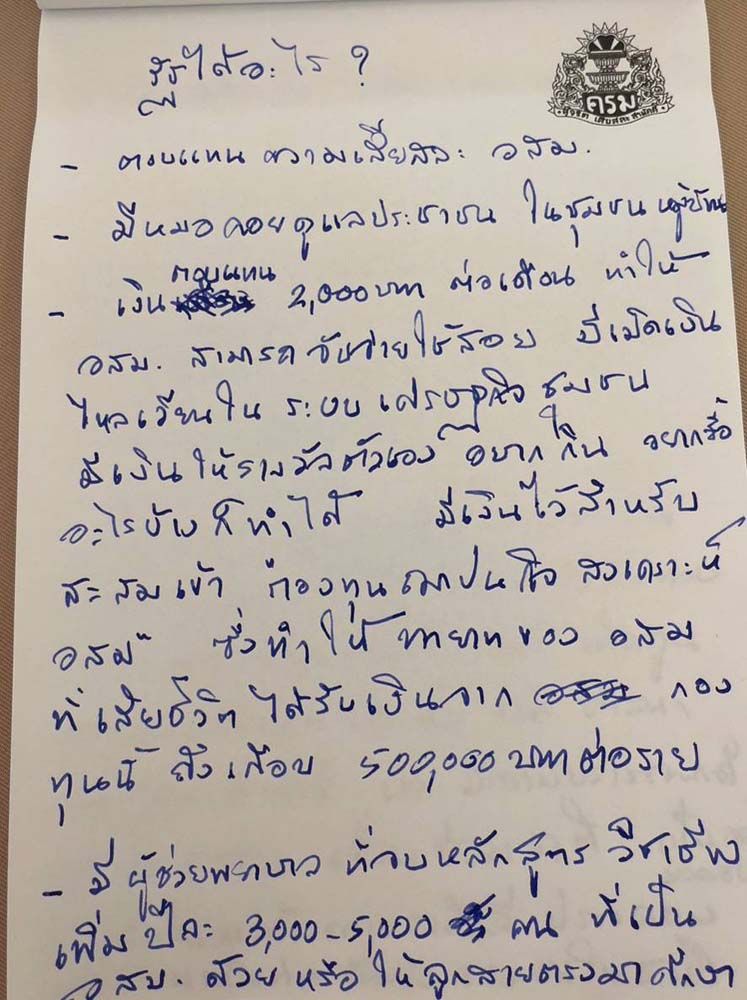 รัฐได้อะไร ?
ครม
- ตอบแทน ความเสียสละ อสม.
- มีหมอคอยดูแลประชาชน ในชุมชน หมู่บ้าน
ตอบแทน
- เงิน 2,000 บาท ต่อเดือน ทำให้
อสม. สามารถ จับจ่ายใช้สอย มีเม็ดเงิน
ไหลเวียนใน ระบบ เศรษฐกิจ ชุมชน
มีเงินให้รางวัลตัวเอง อยากกิน อยากซื้อ
อะไรบ้าง ก็ทำได้ มีเงินไว้สำหรับ
สะสมเข้า "กองทุนฌาปนกิจ สงเคราะห์
อสม" ซึ่งทำให้ ทายาทของ อสม
ที่เสียชีวิต ได้รับเงินจาก กอง
ทุนนี้ ถึงเกือบ 500,000 บาทต่อราย
- มี ผู้ช่วยพยาบาล ที่จบหลักสูตร
เพิ่มปีละ 3,000-5,000 คน ที่เป็น
อสม. ด้วย หรือ ให้ลูกสายตรงมาศึกษา